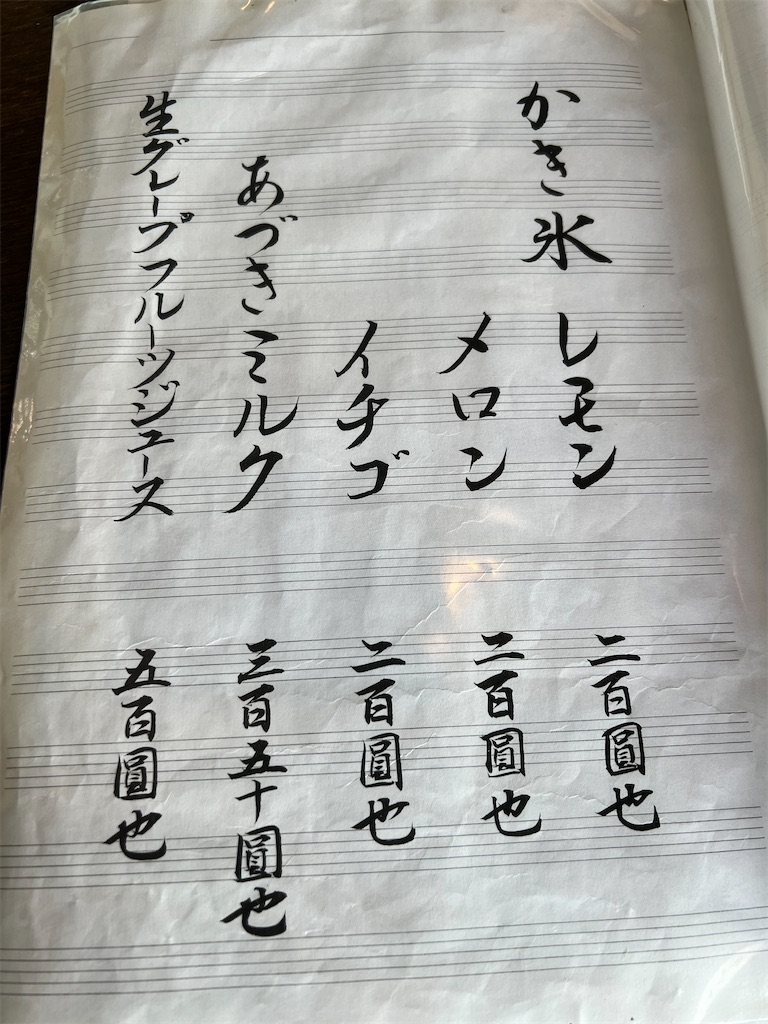 かき氷 レモン 二百圓也
メロン 二百圓也
イチゴ 二百圓也
あづきミルク 三百五十圓也
生グレープフルーツジュース 五百圓也